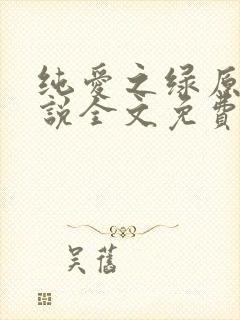 纯爱之绿原
說全文免費
吴舊